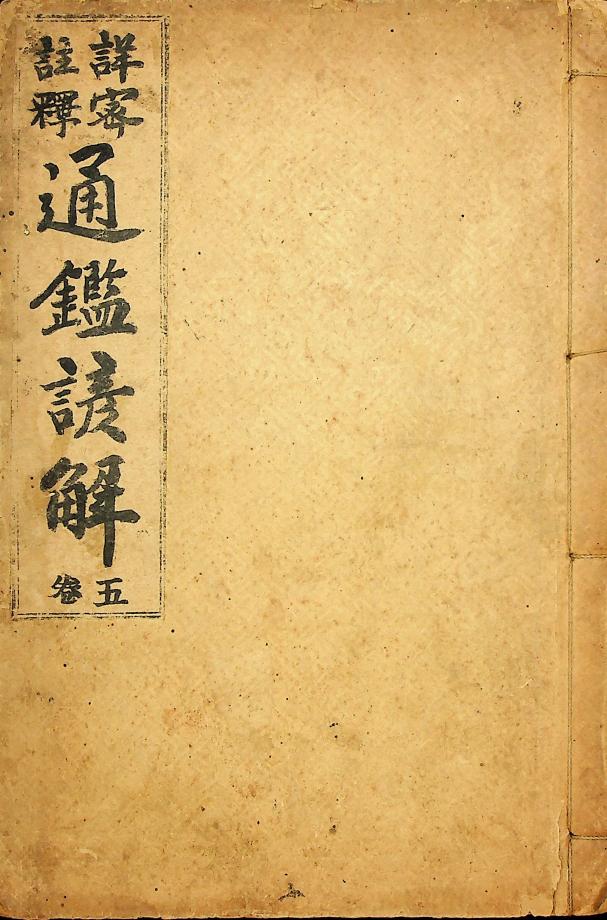 詳密
註釋
通鑑諺解
五卷